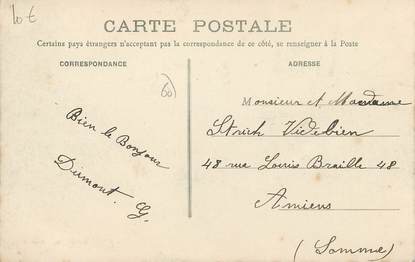 10 €
CARTE POSTALE
Certains pays étrangers n'acceptant pas la correspondance de ce côté, se renseigner à la Poste
CORRESPONDANCE
ADRESSE
60
Bien le Bonjour
Dumont. G.
Monsieur et Madame
Videbien
48 rue Louis Braille 48
Amiens
(Somme)